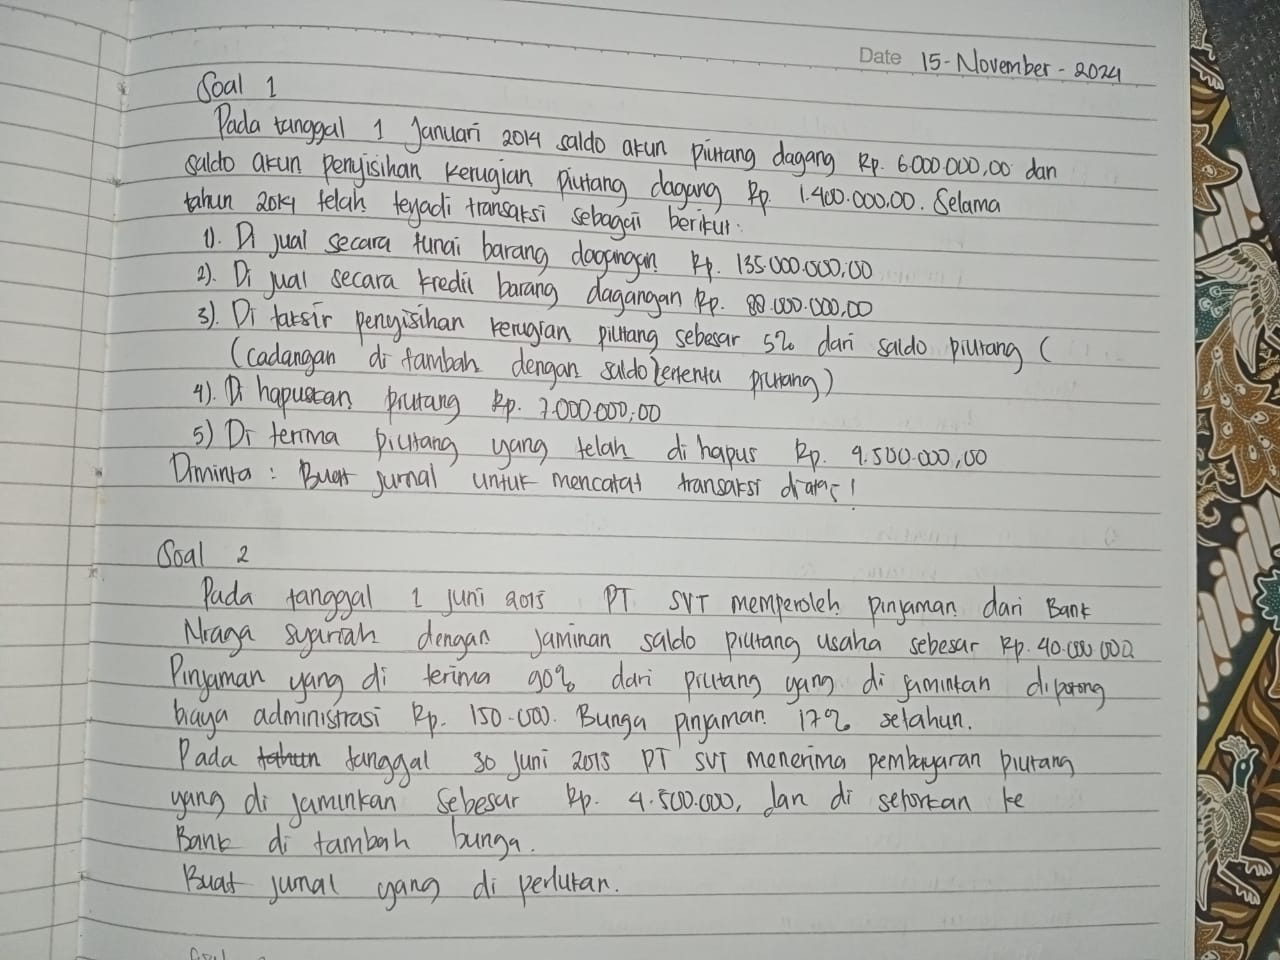 Date 15-November-2024
Soal 1
Pada tanggal 1 Januari 2014 saldo akun piutang dagang Rp. 6.000.000,00 dan
saldo akun penyisihan kerugian piutang dagang Rp. 1.400.000.00. Selama
tahun 2014 telah terjadi transaksi sebagai berikut:
1). Di jual secara tunai barang dagangan Rp. 135.000.000,00
2). Di jual secara kredit barang dagangan Rp. 88.000.000,00
3). Di taksir penyisihan kerugian piutang sebesar 5% dari saldo piutang (
(cadangan di tambah dengan saldo tertentu piutang)
4). Di hapuskan piutang Rp. 7.000.000,00
5) Di terima piutang yang telah di hapus Rp. 9.500.000,00
Diminta : Buat jurnal untuk mencatat transaksi diatas!
Soal 2
Pada tanggal 1 Juni 2015 PT SVT memperoleh pinjaman dari Bank
Niaga syariah dengan jaminan saldo piutang usaha sebesar Rp. 40.000.000.
Pinjaman yang di terima 90% dari piutang yang di jaminkan dipotong
biaya administrasi Rp. 150.000. Bunga pinjaman 17% setahun.
Pada tahun tanggal 30 Juni 2015 PT SVT menerima pembayaran piutang
yang di jaminkan sebesar Rp. 4.500.000, dan di setorkan ke
Bank di tambah bunga.
Buat jurnal yang di perlukan.